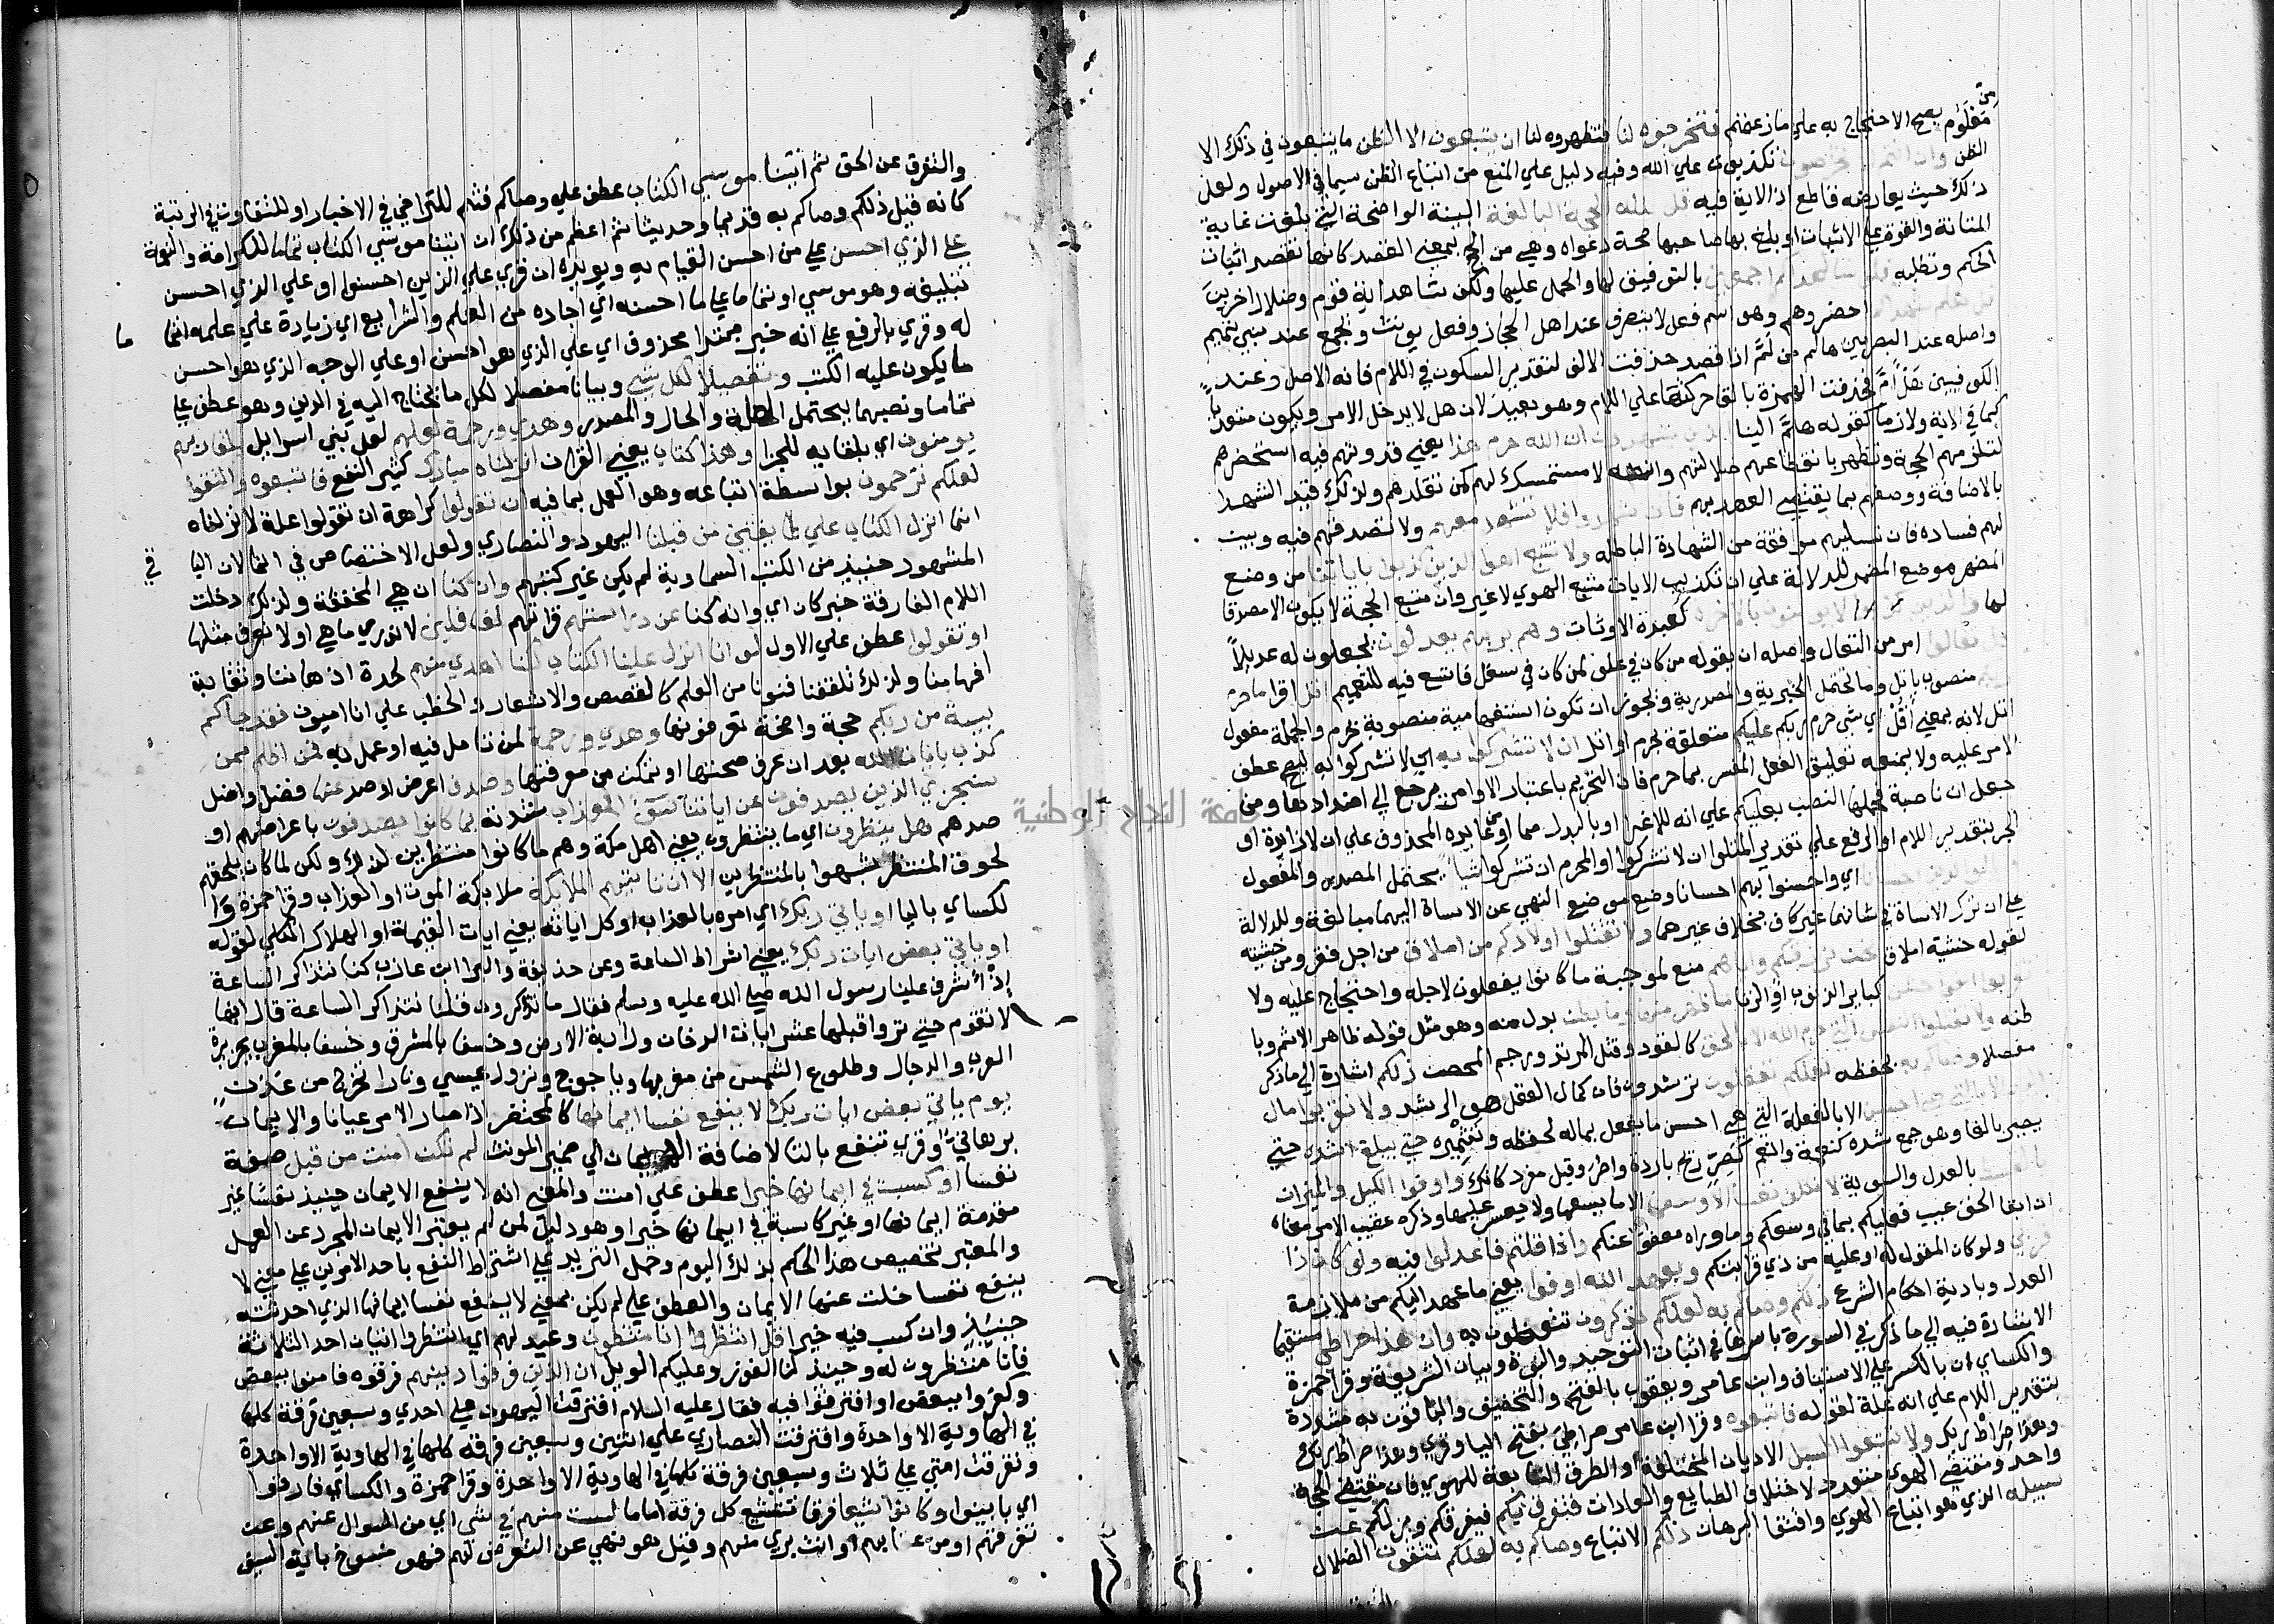 من
معلوم يصح الاحتجاج به علي ما زعمتم فتخرجوه لنا فتظهروه لنا ان يتبعون الا الظن ما يتبعون في ذلك الا
الظن وان انتم الا تخرصون تكذبون علي الله وفيه دليل علي المنع من اتباع الظن سيما في الاصول ولعل
ذلك حيث يعارضه قاطع اذ الاية فيه قل فلله الحجة البالغة البينة الواضحة التي بلغت غاية
المتانة والقوة علي الاثبات او بلغ بها صاحبها صحة دعواه وهي من الحج بمعني القصد كانها تقصد اثبات
الحكم وتطلبه فلو شا لهداكم اجمعين بالتوفيق لها والحمل عليها ولكن شا هداية قوم وضلال اخرين
قل هلم شهداكم احضروهم وهو اسم فعل لا يتصرف عند اهل الحجاز وفعل يونث ويجمع عند بني تميم
واصله عند البصريين هالم من لَمَّ اذا قصد حذفت الالف لتقدير السكون في اللام فانه الاصل وعند
الكوفيين هَلْ اُمَّ فحذفت الهمزة بالقا حركتها علي اللام وهو بعيد لان هل لا يدخل الامر ويكون متعديا
كما في الاية ولازما كقوله هلمَّ الينا الذين يشهدون ان الله حرم هذا يعني قدوتهم فيه استحضرهم
لتلزمهم الحجة ويظهر بانقطاعهم ضلالتهم وانه لا متمسك لهم كمن يقلدهم ولذلك قيد الشهدا
بالاضافة ووصفهم بما يقتضي العهد بهم فان شهدوا فلا تشهد معهم ولا تصدقهم فيه وبين
لهم فساده فان تسليمهم موافقة من الشهادة الباطلة ولا تتبع اهوا الذين كذبوا باياتنا من وضع
المظهر موضع المضمر للدلالة علي ان مكذب الايات متبع الهوي لا غير وان متبع الحجة لا يكون الا مصدقا
لها والذين لا يومنون بالاخرة كعبدة الاوثان وهم بربهم يعدلون يجعلون له عديلاً
قل تعالوا امر من التعال واصله ان يقوله من كان في علو لمن كان في سفل فاتسع فيه للتعميم اتل اقرا ما حرم
ربكم منصوب باتل وما تحتمل الخبرية والمصدرية ويجوز ان تكون استفهامية منصوبة بحرم والجملة مفعول
اتل لانه بمعني أقُلْ اي شي حرم ربكم عليكم متعلقة بحرم او اتل ان لا تشركوا به اي لا تشركوا به ليصح عطف
الامر عليه ولا يمنعه تعليق الفعل المفسر بما حرم فان التحريم باعتبار الاوامر يرجع الي اضدادها ومن
جعل ان ناصبة فمحلها النصب بعليكم علي انه للاغرا او بالبدل مما او من عايده المحذوف علي ان لا زايدة او
الجر بتقدير اللام او الرفع علي تقدير المتلوا ان لا تشركوا او المحرم ان تشركوا شيا يحتمل المصدر والمفعول
وبالوالدين احسانا اي واحسنوا بهم احسانا وضع موضع النهي عن الاساة اليهما مبالغة وللدلالة
علي ان ترك الاساة في شانهما غير كاف بخلاف غيرهما ولا تقتلوا اولادكم من املاق من اجل فقر ومن خشيته
لقوله خشية املاق نحن نرزقكم واياهم منع لموجبية ما كانوا يفعلون لاجله واحتجاج عليه ولا
تقربوا الفواحش كباير الذنوب او الزنا ما ظهر منها وما بطن بدل منه وهو مثل قوله ظاهر الاثم وبا
طنه ولا تقتلوا النفس التي حرم الله الا بالحق كالقود وقتل المرتد ورجم المحصن ذلكم اشارة الي ما ذكر
مفصلا وصاكم به بحفظه لعلكم تعقلون ترشدون فان كمال العقل هو الرشد ولا تقربوا مال
اليتيم الا بالتي هي احسن الا بالفعلة التي هي احسن ما يفعل بماله كحفظه وتثميره حتي يبلغ اشده حتي
يصير بالغا وهو جمع شدة كنعمة وانعم كَصِرٍّ ريح باردة واصر وقيل مفرد كانك واوفوا الكيل والميزان
بالقسط بالعدل والسوية لا نكلف نفسا الا وسعها الا ما يسعها ولا يعسر عليها وذكره عقيب الامر معناه
ان ايفا الحق عسر فعليكم بما في وسعكم وما وراه معفو عنكم واذا قلتم فاعدلوا فيه ولو كان ذا
قربي ولو كان المقول له او عليه من ذي قرابتكم وبعهد الله اوفوا يعني ما عهد اليكم من ملازمة
العدل وتادية احكام الشرع ذلكم وصاكم به لعلكم تذكرون تتعظون به وان هذا صراطي مستقيما
الاشارة فيه الي ما ذكر في السورة باسرها في اثبات التوحيد والنبوة وبيان الشريعة وقرا حمزة
والكساي ان بالكسر علي الاستيناف وابن عامر ويعقوب بالفتح والتخفيف والباقون به مشددة
بتقدير اللام علي انه علة لقوله فاتبعوه وقرا ابن عامر صراطيَ بفتح اليا وقري وهذا صراط ربكم
وهذا صراط ربك ولا تتبعوا السبل الاديان المختلفة او الطرق التابعة للهوي فان مقتضي الحجة
واحد ومقتضي الهوي متعدد لاختلاف الطبايع والعادات فتفرق بكم فيفرقكم ويزلكم عن
سبيله الذي هو اتباع الهوي واقتفا البرهان ذلكم الاتباع وصاكم به لعلكم تتقون الضلال
والتفرق
والتفرق عن الحق ثم اتينا موسي الكتاب عطف علي وصاكم فثم للتراخي في الاخبار او للتفاوت في الرتبة
كانه قيل ذلكم وصاكم به قديما وحديثا ثم اعظم من ذلك ان اتينا موسي الكتاب تماما للكرامة والنعمة
علي الذي احسن علي من احسن القيام به ويويده ان قري علي الذين احسنوا او علي الذي احسن
تبليغه وهو موسي او تماما علي ما احسنه اي اجاده من العلم والشرايع اي زيادة علي علمه اتما
ما
له وقري بالرفع علي انه خبر مبتدا محذوف اي علي الذي هو احسن او علي الوجه الذي هو احسن
ما يكون عليه الكتب وتفصيلا لكل شي وبيانا مفصلا لكل ما يحتاج اليه في الدين وهو عطف علي
تماما ونصبهما يحتمل العلة والحال والمصدر وهدي ورحمة لعلهم لعل بني اسرايل بلقا ربهم
يومنون اي بلقايه للجزا وهذا كتاب يعني القران انزلناه مبارك كثير النفع فاتبعوه واتقوا
لعلكم ترحمون بواسطة اتباعه وهو العمل بما فيه ان تقولوا كراهة ان تقولوا علة لانزلناه
انما انزل الكتاب علي طايفتين من قبلنا اليهود والنصاري ولعل الاختصاص في انما لان البا
في
المشهود حينيذ من الكتب السماوية لم يكن غير كتبهم وان كنا ان هي المخففة ولذلك دخلت
اللام الفارقة خبر كان اي وانه كنا عن دراستهم قراتهم لغافلين لا ندري ما هي او لا نعرف مثلها
او تقولوا عطف علي الاول لو انا انزل علينا الكتاب لكنا اهدي منهم لحدة اذهاننا وثقابة
افهامنا ولذلك تلقفنا فنونا من العلم كالقصص والاشعار والخطب علي انا اميون فقد جاكم
بينة من ربكم حجة واضحة تعرفونها وهدي ورحمة لمن تامل فيه او عمل به فمن اظلم ممن
كذب بايات الله بعد ان عرف صحتها او تمكن من معرفتها وصدف اعرض او صد عنها فضل واضل
سنجزي الذين يصدفون عن اياتنا سوء العذاب شدته بما كانوا يصدفون باعراضهم او
صدهم هل ينظرون اي ما ينتظرون يعني اهل مكة وهم ما كانوا منتظرين لذلك ولكن لما كان يلحقهم
لحوق المنتظر شبهوا بالمنتظرين الا ان تاتيهم الملايكة ملايكة الموت او العذاب وقرا حمزة وا
لكساي باليا او ياتي ربك اي امره بالعذاب او كل اياته يعني ايات القيمة او الهلاك الكلي لقوله
او ياتي بعض ايات ربك يعني اشراط الساعة وعن حذيفة والبرا ابن عازب كنا نتذاكر الساعة
إذْ أشرف علينا رسول الله صلي الله عليه وسلم فقال ما تذكرون قلنا نتذاكر الساعة قال انها
لا تقوم حتي تروا قبلها عشر ايات الدخان ودابة الارض وخسفا بالمشرق وخسفا بالمغرب بجزيرة
العرب والدجال وطلوع الشمس من مغربها وياجوج ونزول عيسي ونارا تخرج من عدن
يوم ياتي بعض ايات ربك لا ينفع نفسا ايمانها كالمحتضر اذا صار الامر عيانا والايمان
برهاني وقري تنفع بالتا لاضافة الايمان الي ضمير المونث لم تكن امنت من قبل صفة
نفسا او كسبت في ايمانها خيرا عطف علي امنت والمعني انه لا ينفع الايمان حينيذ نفسا غير
مقدمة ايمانها او غير كاسبة في ايمانها خيرا وهو دليل لمن لم يعتبر الايمان المجرد عن العمل
والمعتبر تخصيص هذا الحكم بذلك اليوم وحمل الترديد علي اشتراط النفع باحد الامرين علي معني لا
ينفع نفسا خلت عنها الايمان والعطف علي لم تكن بمعني لا ينفع نفسا ايمانها الذي احدثته
حينيذٍ وان كسب فيه خيرا قل انتظروا انا منتظرون وعيد لهم اي انتظروا اتيان احد الثلاثة
فانا منتظرون له وحينيذ لنا الفوز وعليكم الويل ان الذين فرقوا دينهم فرقوه فامنوا ببعض
وكفروا ببعض او افترقوا فيه فقال عليه السلام افترقت اليهود علي احدي وسبعين فرقة كلها
في الهاوية الا واحدة وافترقت النصاري علي اثنين وسبعين فرقة كلها في الهاوية الا واحدة
وتفرقت امتي علي ثلاث وسبعين فرقة كلها في الهاوية الا واحدة وقرا حمزة والكساي فارقوا
اي باينوا وكانوا شيعا فرقا تتشيع كل فرقة اماما لست منهم في شي اي من السوال عنهم وعن
تفرقهم او من عقابهم او انت بري منهم وقيل هو نهي عن التعرض لهم فهو منسوخ باية السيف
جامعة النجاح الوطنية